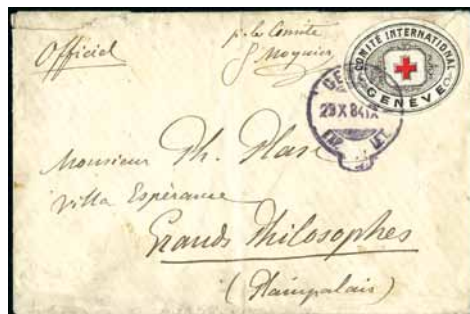 Officiel
p. le Comité
G Moynier
COMITÉ INTERNATIONAL
GENÈVE
29 X 84 IX
EXP. LET.
Monsieur Ph. Plan
Villa Espérance
Grands Philosophes
(Plainpalais)